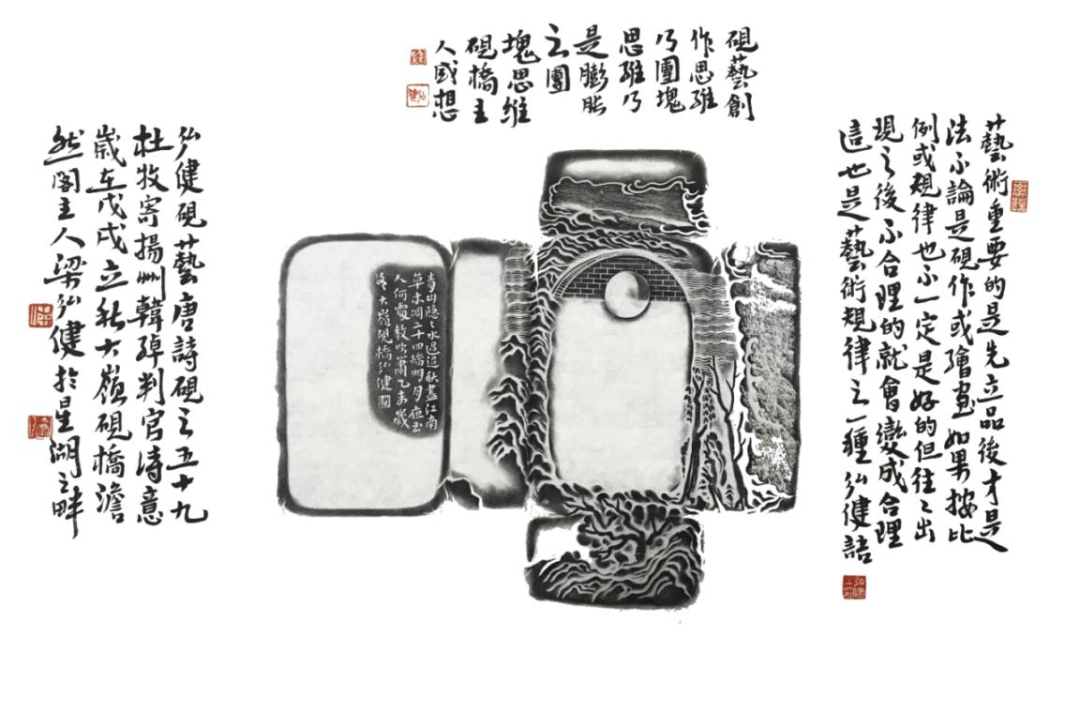 藝術重要的是先立品後才是
法不論是硯作或繪畫如果按比
例或規律也不一定是好的但往々出
現之後不合理的就會變成合理
這也是藝術規律之一種弘健語
硯藝創
作思維
乃團塊
思維乃
是膨脹
之團
塊思維
硯橋主
人感想
青山隱々水迢迢秋盡江南
草未凋二十四橋明月夜玉
人何處教吹簫乙未歲
冬大嶺硯橋弘健圖
弘健硯藝唐詩硯之五十九
杜牧寄揚州韓綽判官詩意
歲在戊戌立秋大嶺硯橋澹
然閣主人梁弘健於星湖之畔